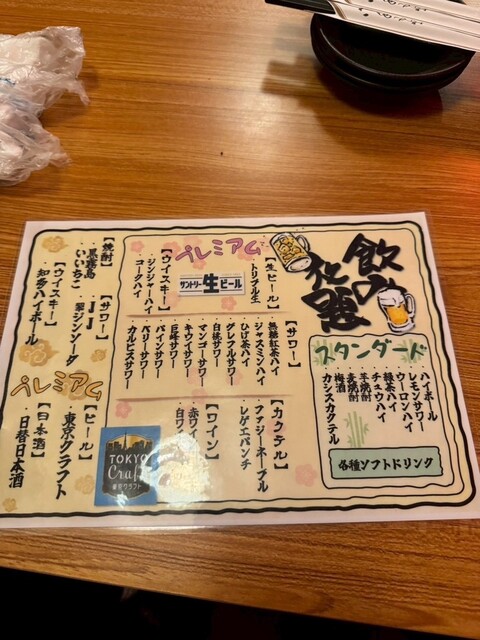 飲み放題
スタンダード
ハイボール
レモンサワー
ウーロンハイ
緑茶ハイ
チュウハイ
芋焼酎
麦焼酎
梅酒
カシスカクテル
各種ソフトドリンク
プレミアム
【生ビール】
トリプル生
サントリー生ビール
【ウイスキー】
ジンジャーハイ
コークハイ
【サワー】
無糖紅茶ハイ
ジャスミンハイ
ひげ茶ハイ
グレフルサワー
白桃サワー
マンゴーサワー
キウイサワー
巨峰サワー
パインサワー
ベリーサワー
カルピスサワー
【カクテル】
ファジーネーブル
レゲエパンチ
【ワイン】
赤ワイン
白ワイン
【焼酎】
黒霧島
いいちこ
【ウイスキー】
知多ハイボール
【サワー】
翠ジンソーダ
プレミアム
【ビール】
東京クラフト
【日本酒】
日替日本酒
TOKYO
Craft
東京クラフト